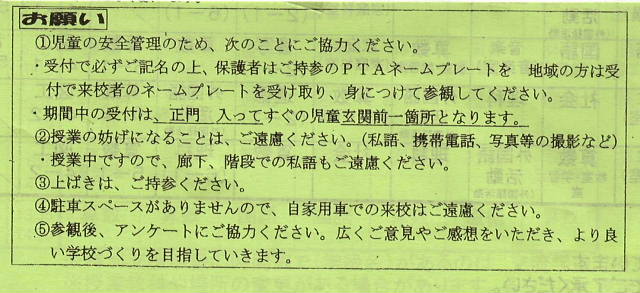 お願い
①児童の安全管理のため、次のことにご協力ください。
・受付で必ずご記名の上、保護者はご持参のＰＴＡネームプレートを　地域の方は受
付で来校者のネームプレートを受け取り、身につけて参観してください。
・期間中の受付は、正門　入ってすぐの児童玄関前一箇所となります。
②授業の妨げになることは、ご遠慮ください。（私語、携帯電話、写真等の撮影など）
・授業中ですので、廊下、階段での私語もご遠慮ください。
③上ばきは、ご持参ください。
④駐車スペースがありませんので、自家用車での来校はご遠慮ください。
⑤参観後、アンケートにご協力ください。広くご意見やご感想をいただき、より良
い学校づくりを目指していきます。